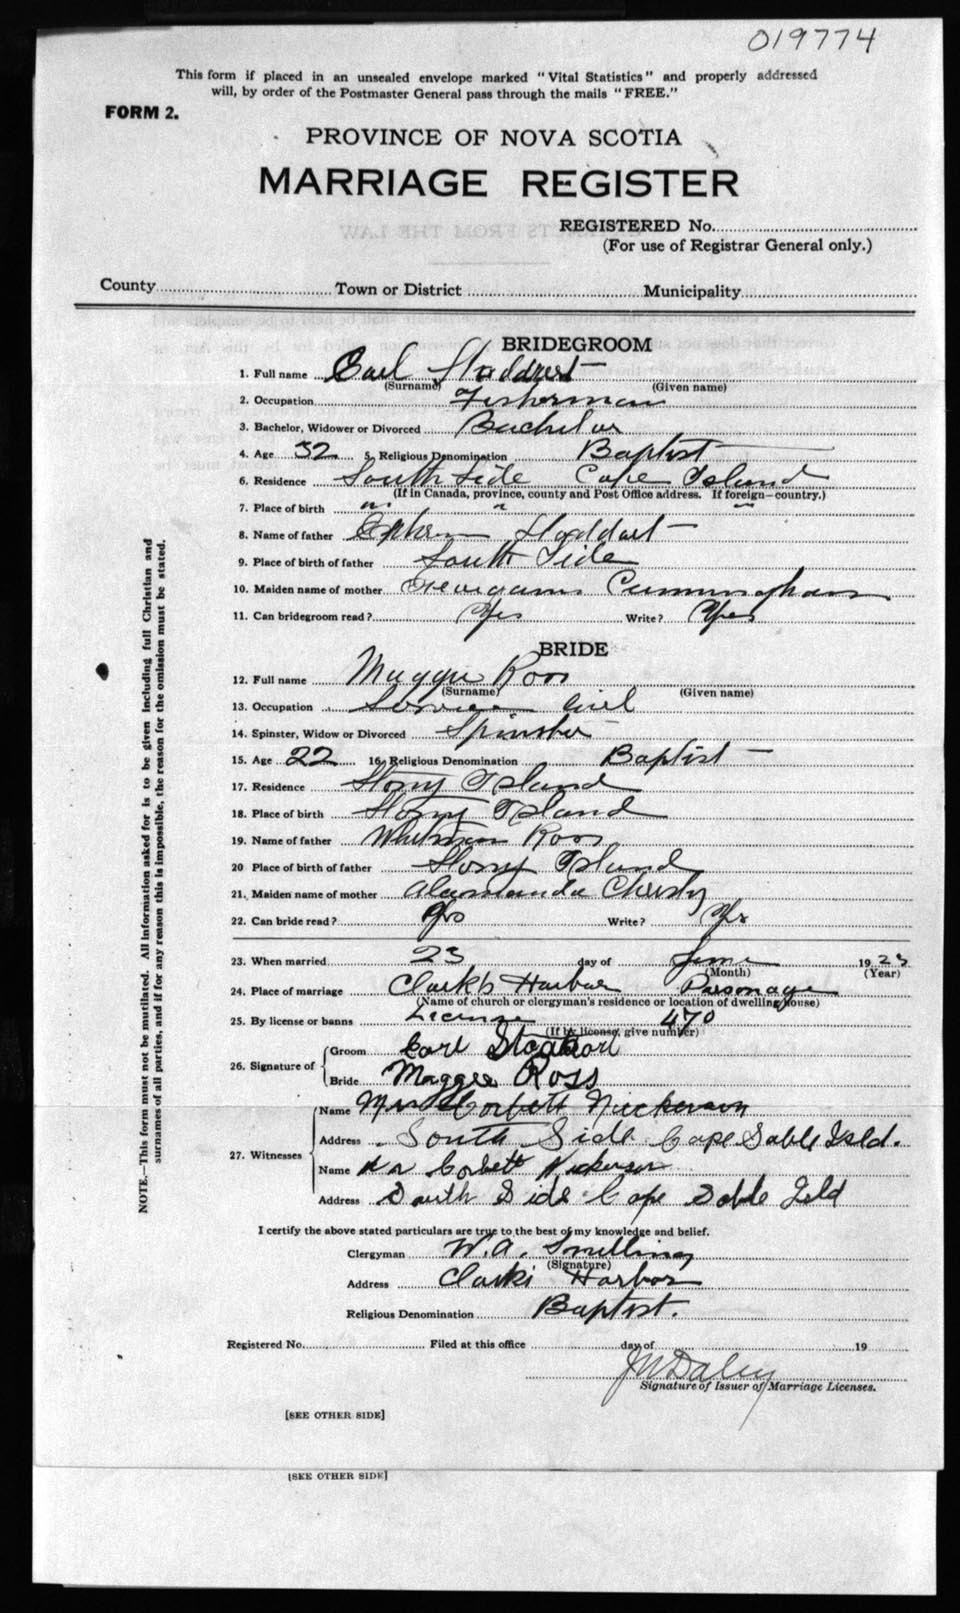 019774
This form if placed in an unsealed envelope marked "Vital Statistics" and properly addressed
will, by order of the Postmaster General pass through the mails "FREE."
FORM 2.
PROVINCE OF NOVA SCOTIA
MARRIAGE REGISTER
REGISTERED No.
(For use of Registrar General only.)
County Town or District Municipality
BRIDEGROOM
1. Full name Carl Stoddart
(Surname) (Given name)
2. Occupation Fisherman
3. Bachelor, Widower or Divorced Bachelor
4. Age 32 5. Religious Denomination Baptist
6. Residence South Side Cape Island
(If in Canada, province, county and Post Office address. If foreign—country.)
7. Place of birth " " "
8. Name of father Stoddart
9. Place of birth of father South Side
10. Maiden name of mother Cunningham
11. Can bridegroom read? Yes Write? Yes
BRIDE
12. Full name Maggie Ross
(Surname) (Given name)
13. Occupation Girl
14. Spinster, Widow or Divorced Spinster
15. Age 22 16. Religious Denomination Baptist
17. Residence Stony Island
18. Place of birth Stony Island
19. Name of father Whitman Ross
20 Place of birth of father Stony Island
21. Maiden name of mother
22. Can bride read? Yes Write? Yes
23. When married 23 day of June 1923
(Month) (Year)
24. Place of marriage Clark's Harbour Parsonage
(Name of church or clergyman's residence or location of dwelling house)
25. By license or banns License 470
(If by license, give number)
26. Signature of Groom Carl Stoddart
Bride Maggie Ross
27. Witnesses Name Mrs Corbett Nickerson
Address South Side Cape Sable Isld.
Name Corbett Nickerson
Address South Side Cape Sable Isld
I certify the above stated particulars are true to the best of my knowledge and belief.
Clergyman W. A. Snelling
(Signature)
Address Clarks Harbor
Religious Denomination Baptist.
Registered No. Filed at this office day of 19
Daley
Signature of Issuer of Marriage Licenses.
[SEE OTHER SIDE]
[SEE OTHER SIDE]
NOTE.—This form must not be mutilated. All information asked for is to be given including full Christian and
surnames of all parties, and if for any reason this is impossible, the reason for the omission must be stated.